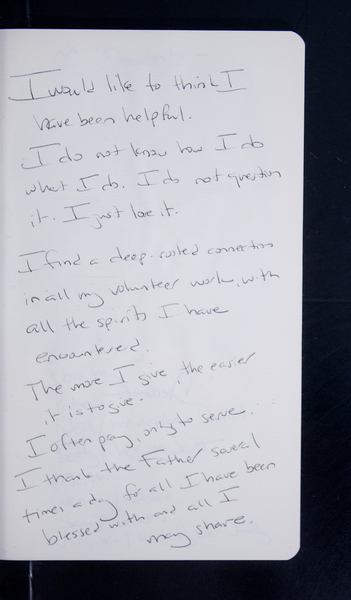 I would like to think I
have been helpful.
I do not know how I do
what I do. I do not question
it. I just love it.
I find a deep-rooted connection
in all my volunteer work, with
all the spirits I have
encountered.
The more I give, the easier
it is to give.
I often pray, only to serve.
I thank the Father several
times a day for all I have been
blessed with and all I
may share.